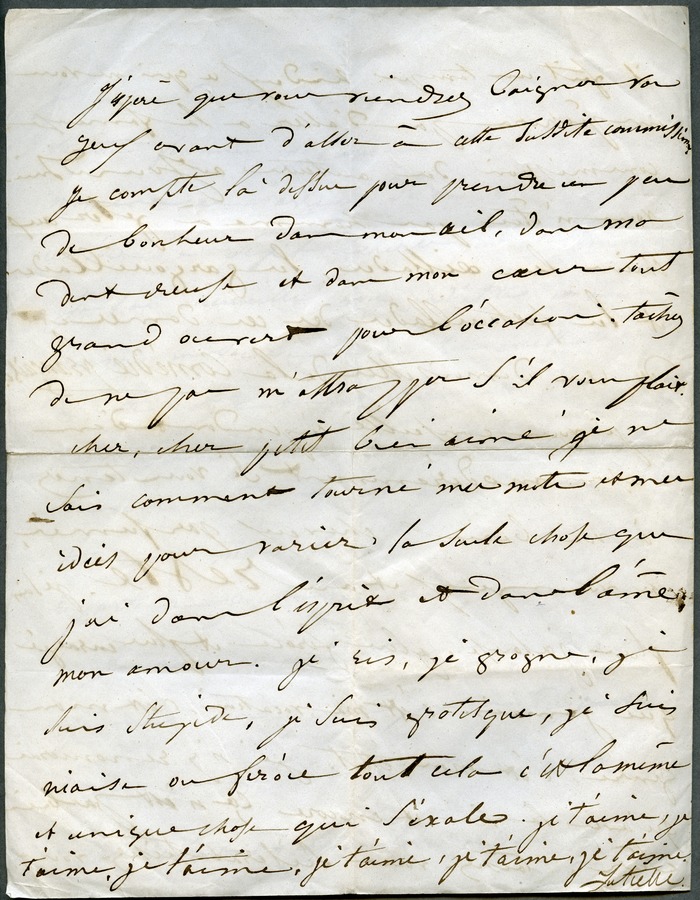 J'espère que vous viendrez baigner vos
yeux avant d'aller à cette susdite commission
Je compte là dessus pour prendre un peu
de bonheur dans mon œil, dans ma
dent creuse et dans mon cœur tout
grand ouvert pour l'occasion. tâchez
de ne pas m'attrapper s'il vous plait.
cher, cher petit bien aimé je ne
sais comment tourné mes mots et mes
idées pour varier la seule chose que
j'ai dans l'esprit et dans l'âme,
mon amour. je ris, je grogne, je
suis stupide, je suis grotesque, je suis
niaise ou féroce tout cela c'est la même
et unique chose qui s'exale. je t'aime, je
t'aime, je t'aime, je t'aime, je t'aime, je t'aime.
Juliette